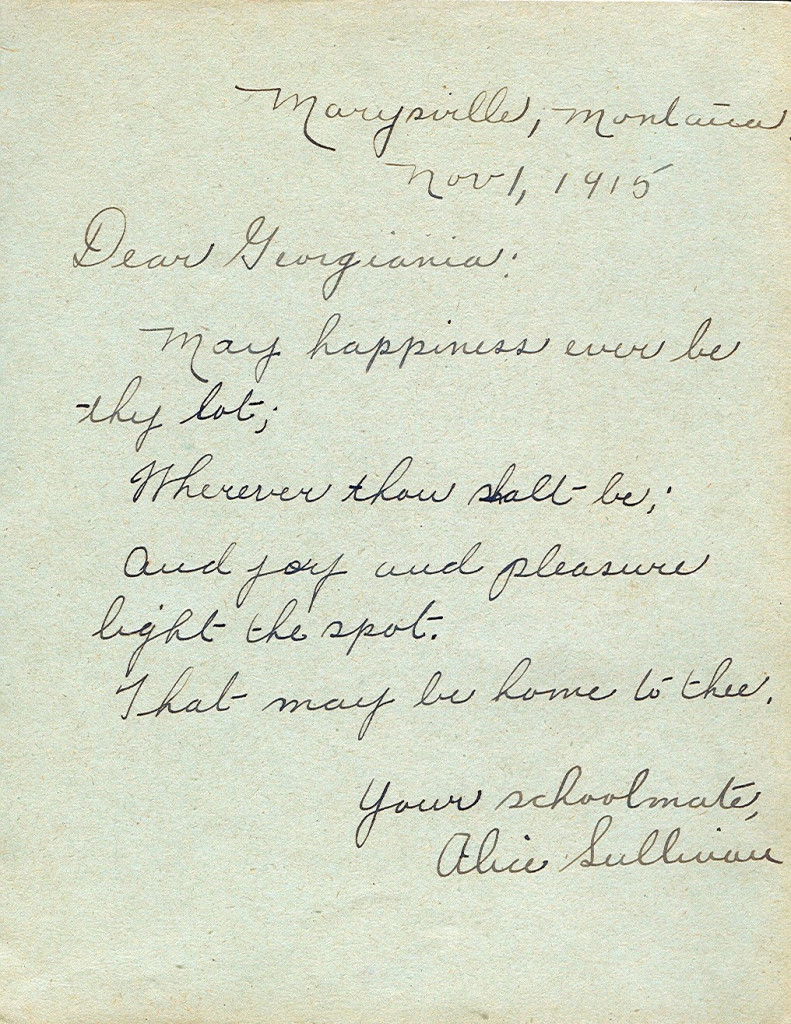 Marysville, Montana.
Nov 1, 1915
Dear Georgiania:
May happiness ever be
thy lot;
Wherever thou shalt be;
And joy and pleasure
light the spot.
That may be home to thee.
Your schoolmate,
Alice Sullivan